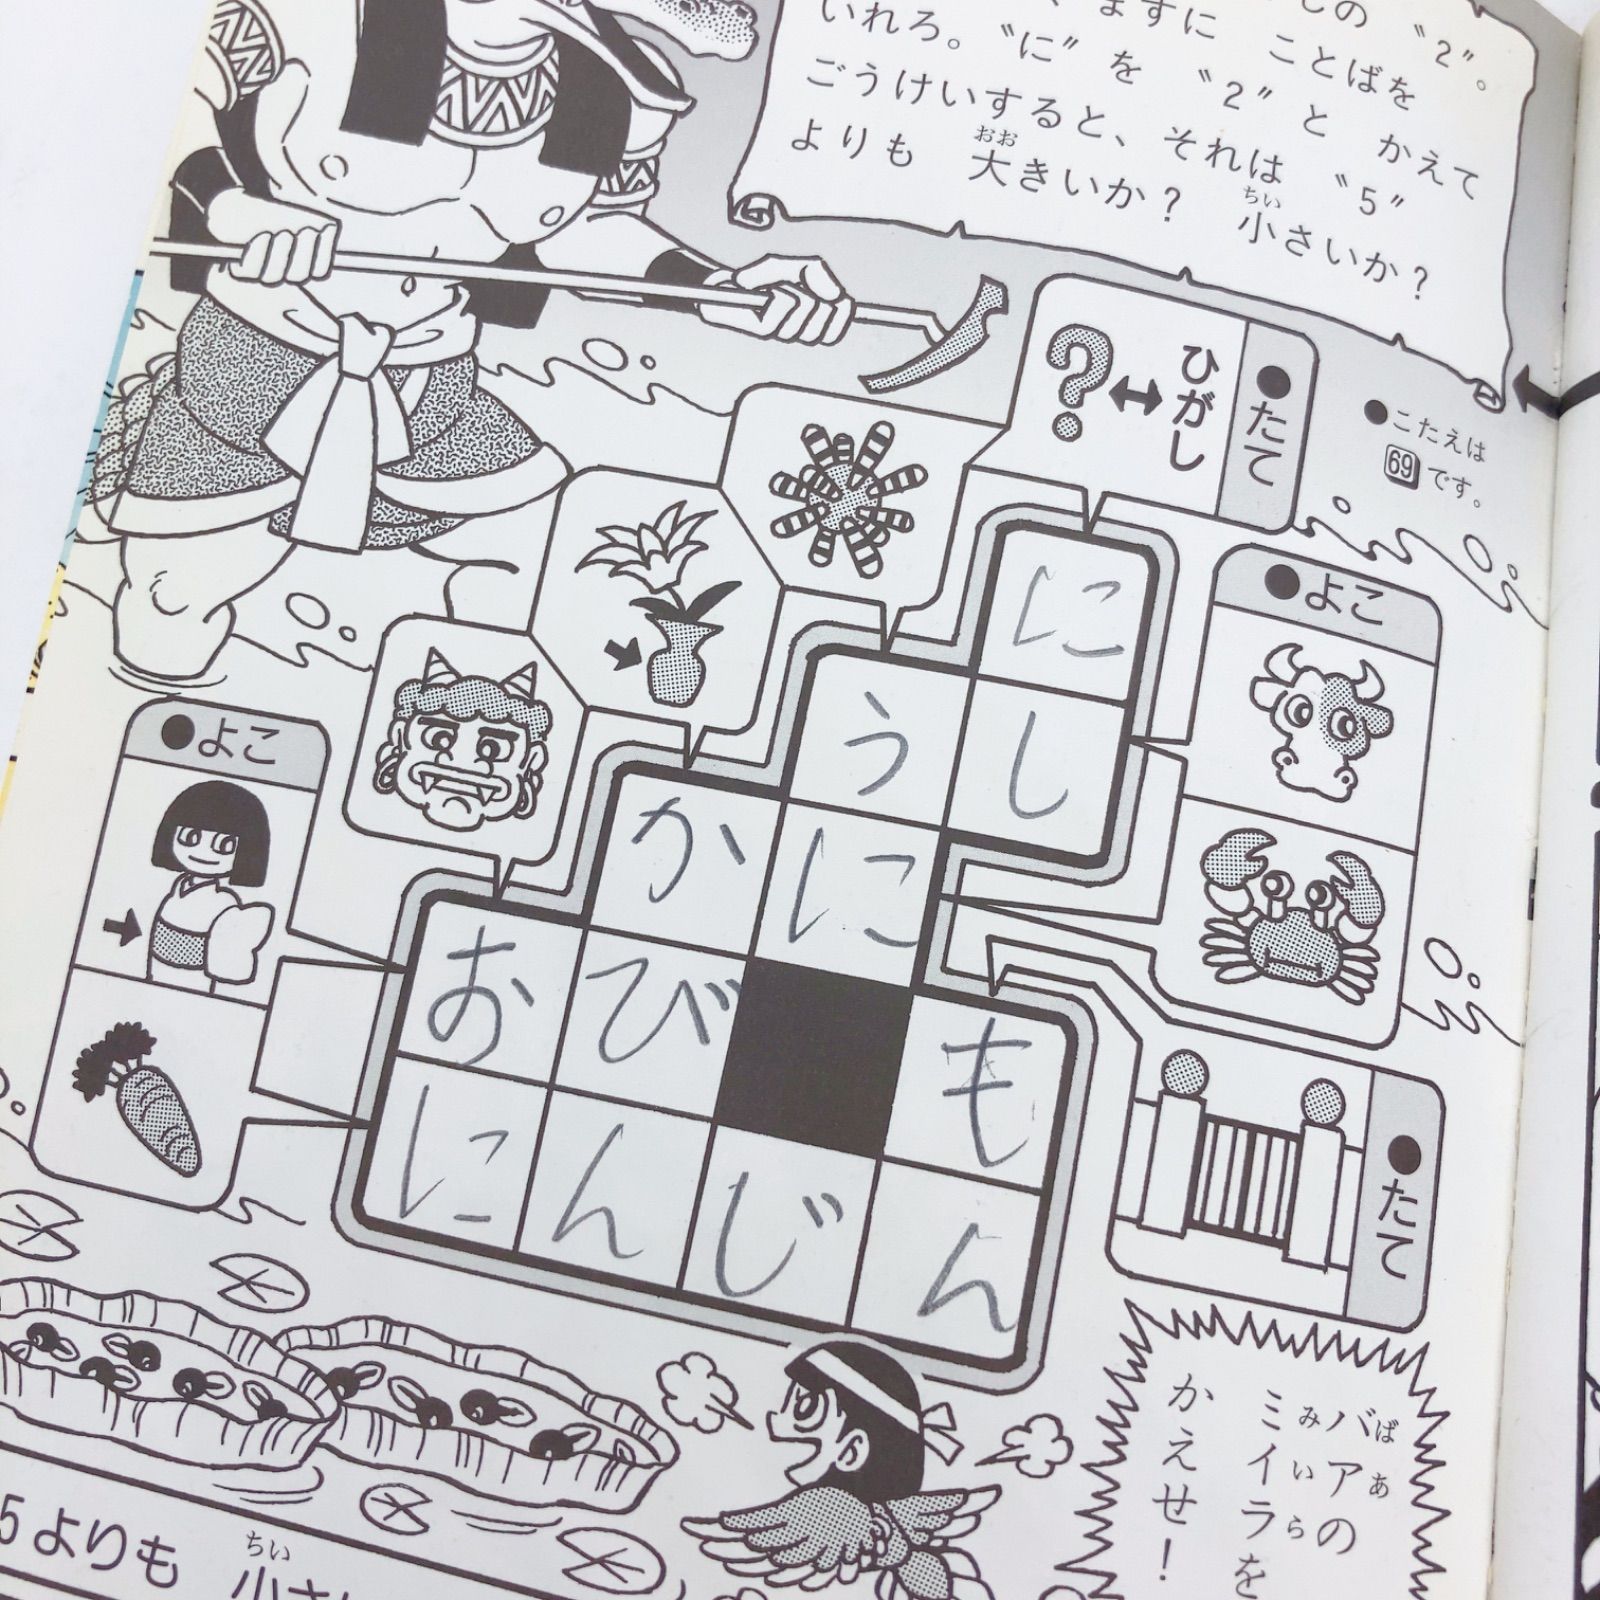 しの〝2〟。
ますに ことばを
いれろ。〝に〟を 〝2〟と かえて
ごうけいすると、それは 〝5〟
おお
よりも 大きいか?
ちい
小さいか?
●こたえは
69です。
●たて
ひがし
?
●よこ
●よこ
に
う し
か に
お び も
に ん じ ん
●たて
バアの
ばあ
ミイラを
みいら
かえせ!
5よりも
ちい
小さ